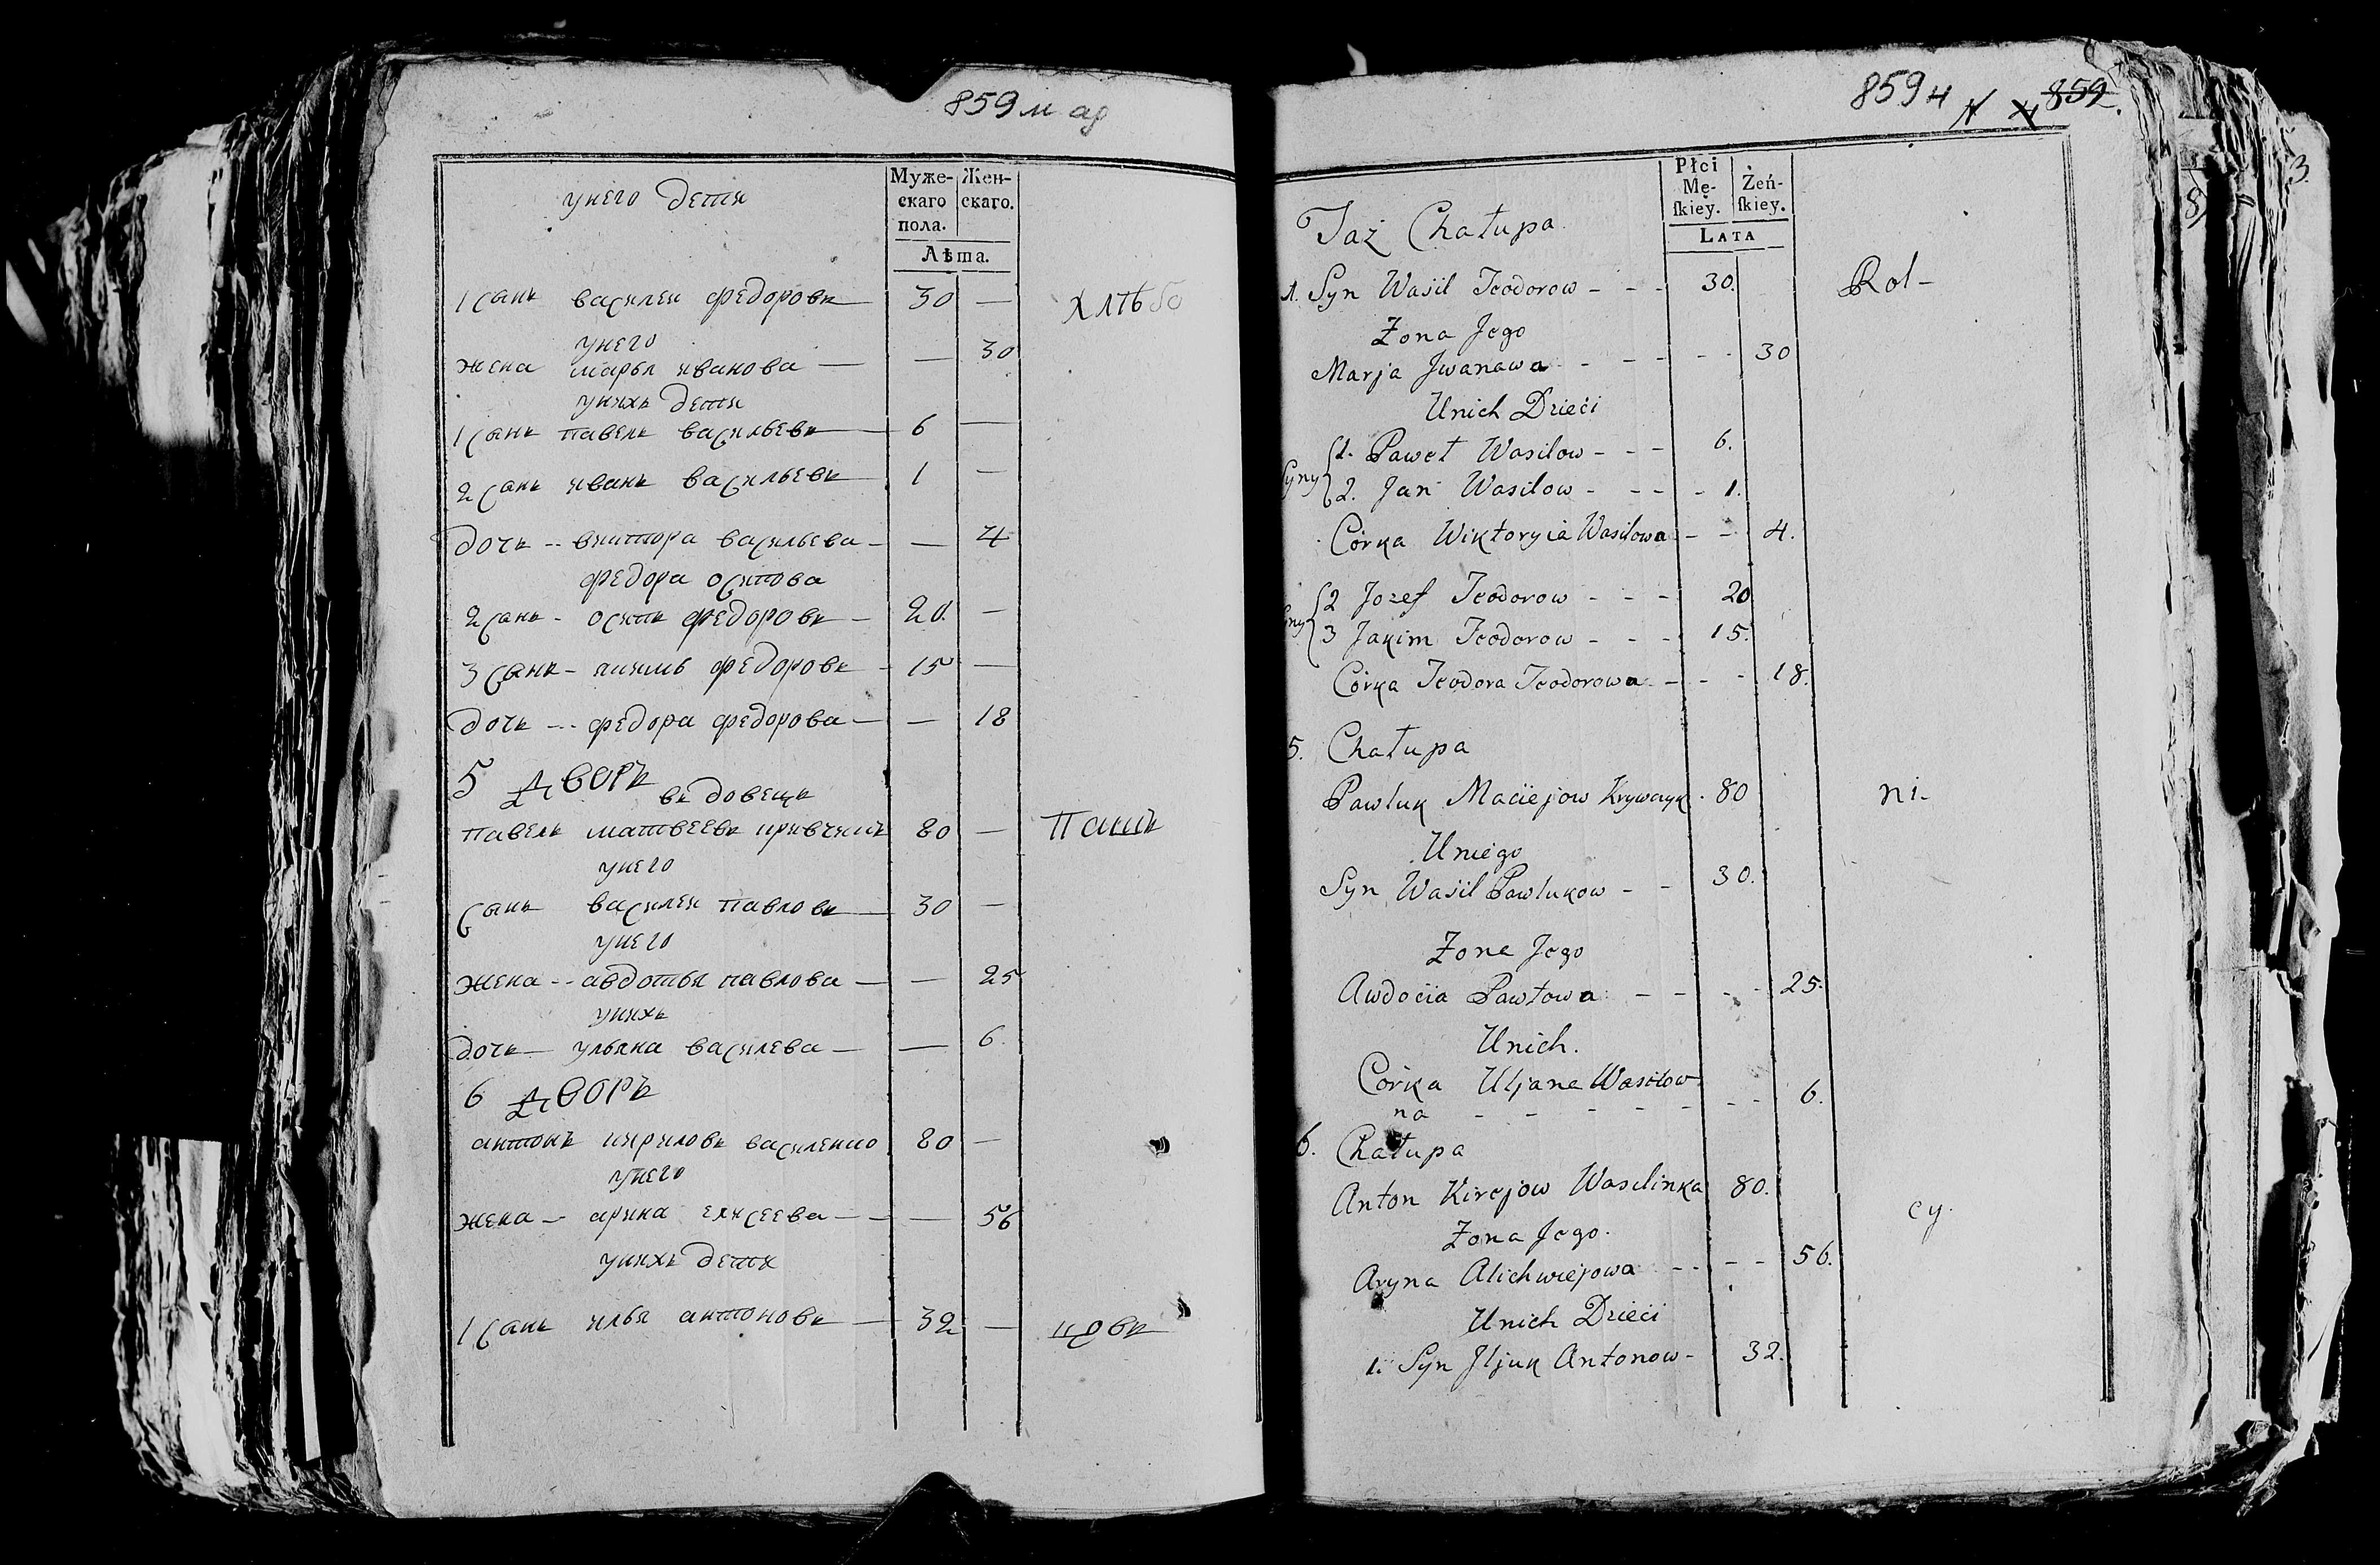 859м ар
у него дети
Муже-
скаго
пола.
Жен-
скаго.
Лѣта.
1 санъ василеи федоровъ — 30 —
хлѣбо
у него
жена марья иванова — — 30
у нихъ дети
1 санъ павелъ васильевъ — 6 —
2 санъ иванъ васильевъ 1 —
дочь -- виктора васильева — — 4
федора осипова
2 санъ - осипъ федоровъ — 20. —
3 санъ - якимъ федоровъ - 15 —
дочь --- федора федорова — — 18
5 дворъ
въдовецъ
павелъ матвеевъ кривчикъ 80 —
пашъ
у него
санъ василеи павловъ — 30 —
у него
жена -- авдотья павлова — — 25
у нихъ
дочь — ульяна василева — — 6.
6 дворъ
антонъ кириловъ василенко 80 —
у него
жена — арина елисеева - - — 56
у нихъ дети
1 санъ илья антоновъ — 32 —
цовъ
859н 859.
Płci
Mę-
ſkiey.
Żeń-
ſkiey.
LATA
Taż Chałupa
1. Syn Wasil Teodorow - - - 30.
Rol-
Żona Jego
Marja Jwanawa - - - - 30
Unich Dzieci
Syny
1. Paweł Wasilow - - - 6.
2. Jan Wasilow - - - - 1.
Córka Wiktoryia Wasilowa - - 4.
2 Jozef Teodorow - - - 20
3 Jakim Teodorow - - - 15.
Córka Teodora Teodorowa - - - 18.
5. Chałupa
Pawluk Maciejow Krywczyk. 80
ni-
Uniego
Syn Wasil Pawlukow - - 30.
Żone Jego
Awdocia Pawłowa - - - - 25.
Unich.
Córka Uljane Wasilow
na - - - - - - - 6.
6. Chałupa
Anton Kirejow Wasilinka 80.
cy.
Żona Jego.
Aryna Alichwiejowa - - - - 56.
Unich Dzieci
1. Syn Jljuk Antonow - 32.